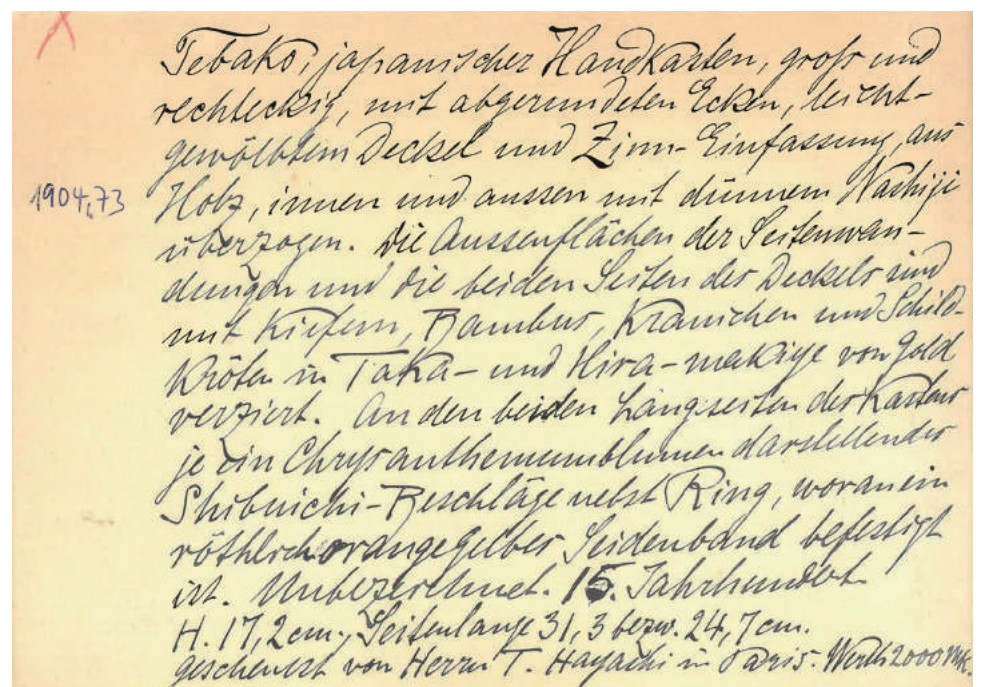 Tebako, japanischer Handkasten, groß und
rechteckig, mit abgerundeten Ecken, leicht-
gewölbtem Deckel und Zinn-Einfassung, aus
1904,73
Holz, innen und aussen mit dünnem Nashiji
überzogen. Die Aussenflächen der Seitenwan-
dungen und die beiden Seiten des Deckels sind
mit Kiefern, Bambus, Kranichen und Schild-
kröten in Taka- und Hira-makiye von Gold
verziert. An den beiden Langseiten des Kastens
je ein Chrysanthemumblumen darstellendes
Shibuichi-Beschläge nebst Ring, woran ein
röthlichorangegelbes Seidenband befestigt
ist. Unbezeichnet. 15. Jahrhundert.
H. 17,2 cm., Seitenlange 31,3 bezw. 24,7 cm.
geschenkt von Herrn T. Hayashi in Paris. Werth 2000 Mk.